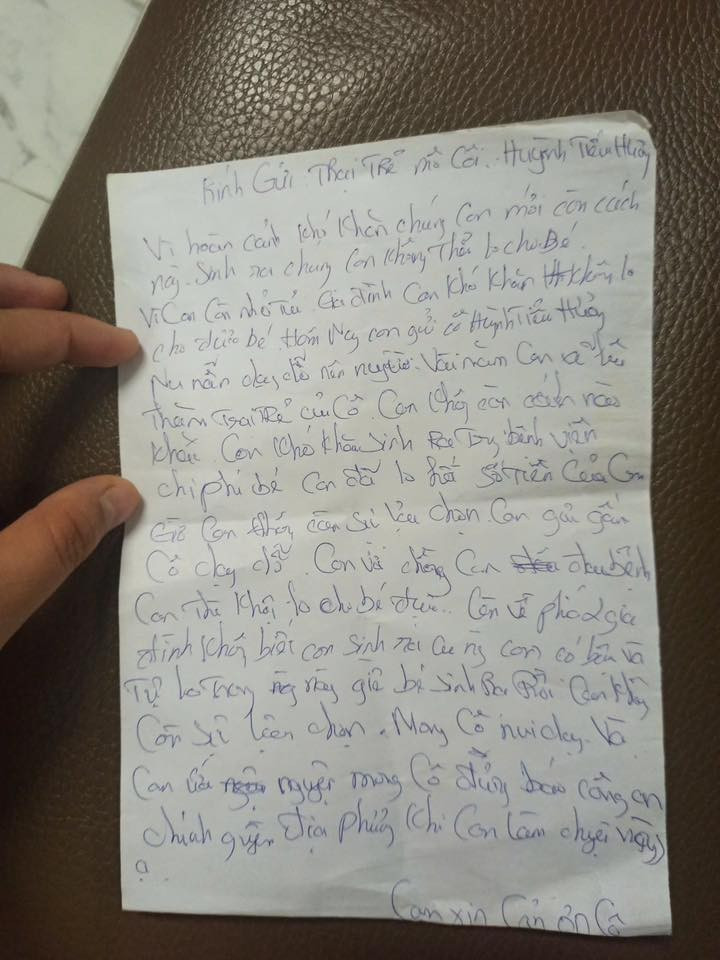 Kính Gửi Trại Trẻ mồ Côi. Huỳnh Tiểu Hưởng
Vì hoàn cảnh khó khăn chúng Con mới còn cách
này. Sinh ra chúng Con không thể lo cho Bé
Vì Con Còn nhỏ Gia đình Con khó khăn không lo
cho được bé Hôm Nay con gửi cô Huỳnh Tiểu Hưởng
dạy dỗ nên người. Vài năm Con sẽ
Thăm Trại Trẻ của Cô. Con không còn cách nào
khác. Con khó khăn sinh bệnh viện
chi phí bé Con đã lo hết số tiền Của Con
Giờ Con không còn sự lựa chọn. Con gửi gắm
Cô dạy dỗ. Con và chồng Con đau bệnh
Con lo cho bé được. Còn về phía 2 gia
đình không biết con sinh ra Con
Tự lo giờ bé sinh Ra Rồi Con không
Còn sự chọn. Mong Cô nuôi dạy. Và
Con nguyện mong Cô đừng báo công an
chính quyền địa phương khi Con làm chuyện này
ạ
Con xin Cản ơn Cô